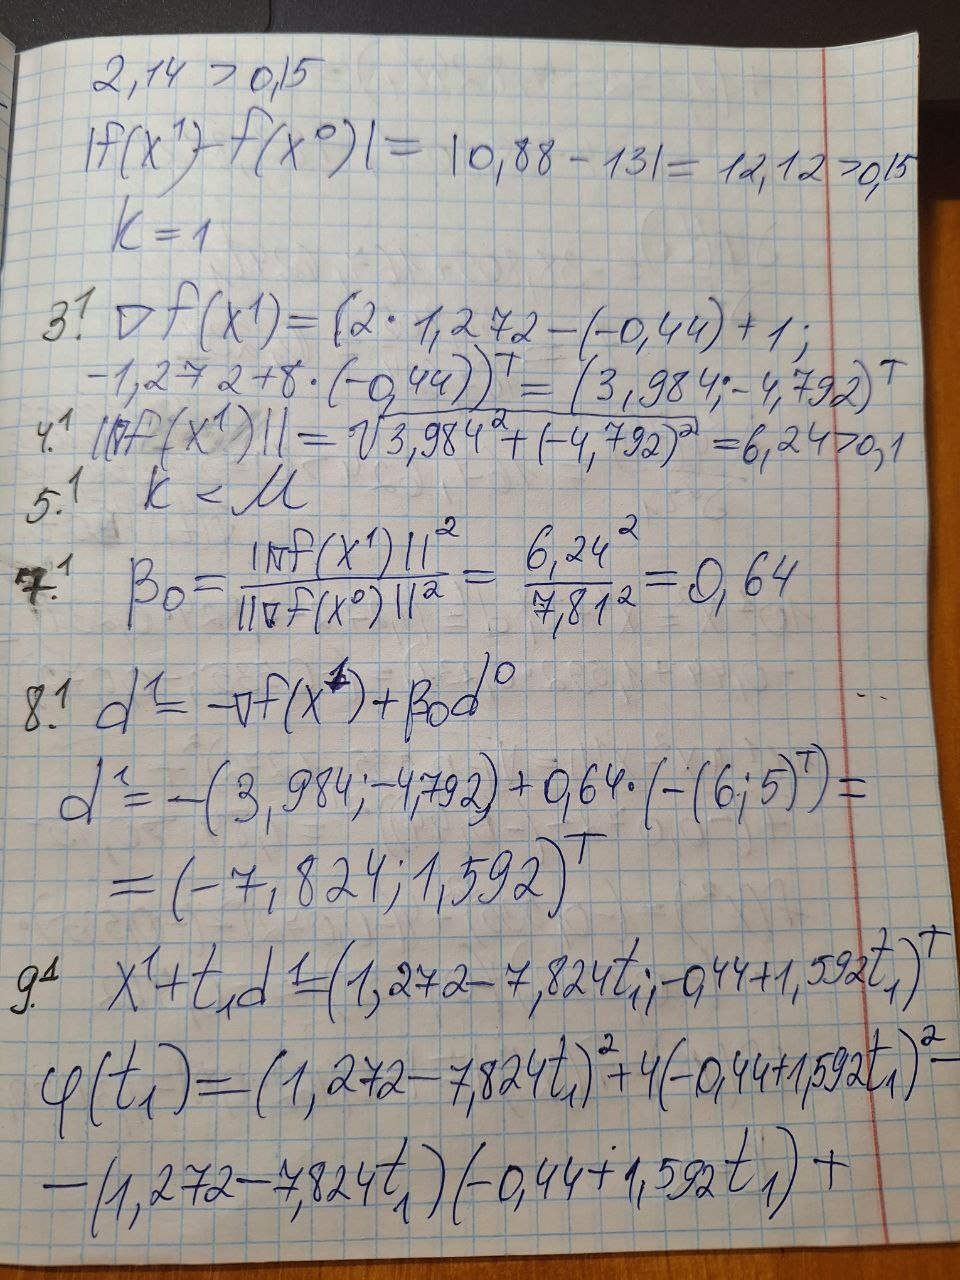 2,14 > 0,15
|f(x¹) - f(x⁰)| = |0,88 - 13| = 12,12 > 0,15
K = 1
3.¹ ∇f(x¹) = (2 · 1,272 - (-0,44) + 1;
-1,272 + 8 · (-0,44))ᵀ = (3,984; -4,792)ᵀ
4.¹ ||∇f(x¹)|| = √(3,984² + (-4,792)²) = 6,24 > 0,1
5.¹ K < M
7.¹ β₀ = ||∇f(x¹)||² / ||∇f(x⁰)||² = 6,24² / 7,81² = 0,64
8.¹ d¹ = -∇f(x¹) + β₀d⁰
d¹ = -(3,984; -4,792) + 0,64 · (-(6; 5)ᵀ) =
= (-7,824; 1,592)ᵀ
9.¹ x¹ + t₁d¹ = (1,272 - 7,824t₁; -0,44 + 1,592t₁)ᵀ
φ(t₁) = (1,272 - 7,824t₁)² + 4(-0,44 + 1,592t₁)² -
- (1,272 - 7,824t₁)(-0,44 + 1,592t₁) +